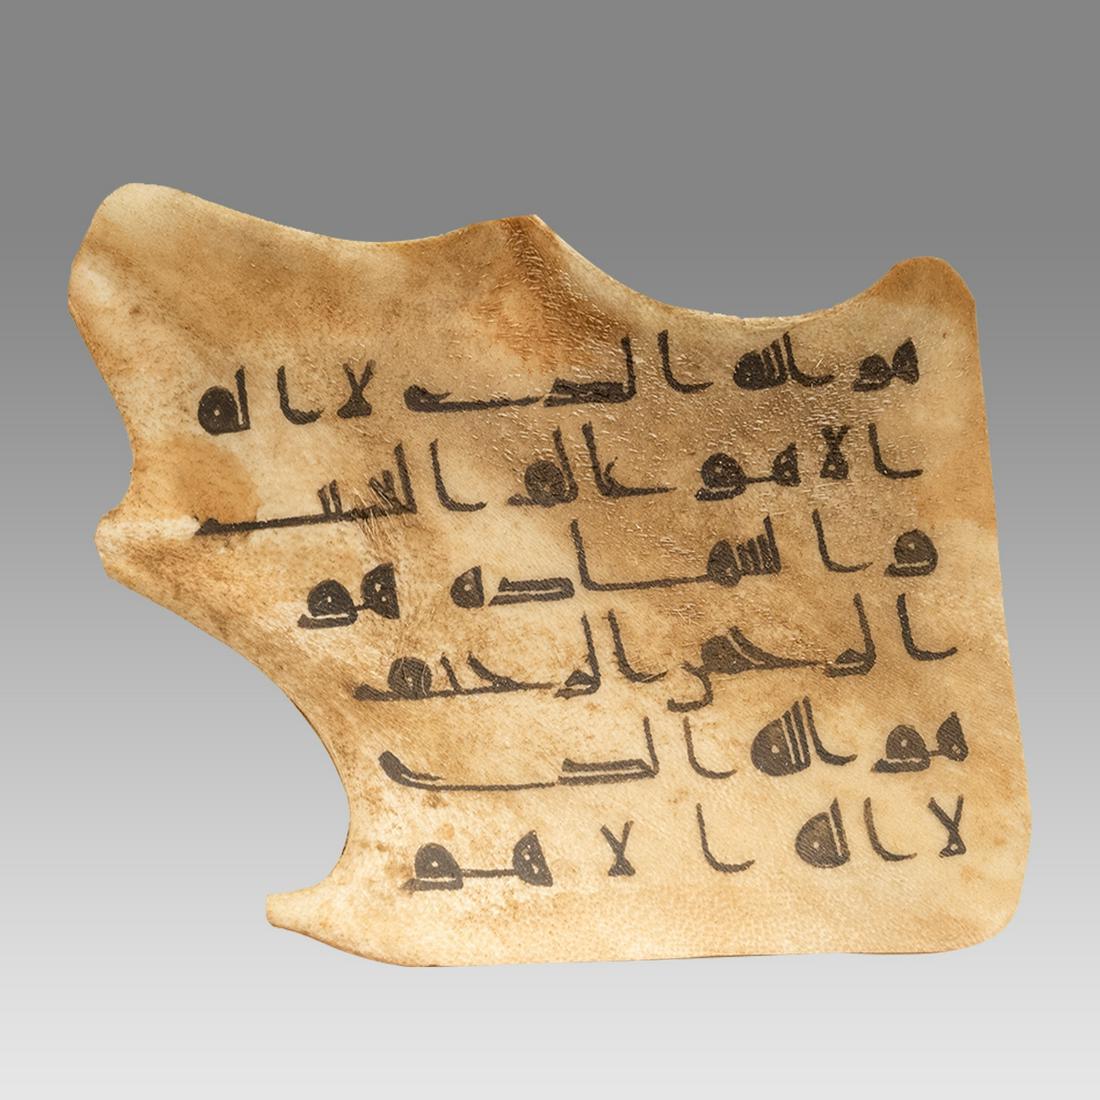 هو الله الدى لا اله
الا هو علم الغىٮ
والسهاده هو
الرحمں الرحىم
هو الله الدى
لا اله الا هو